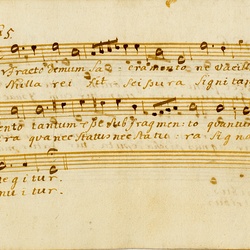 5
Fracto demum Sacramento ne vacill
Nulla rei fit Scissura Signi tan
ento tantum esse Sub fragmento quantum
ra qua nec Status nec Statura Signa
egitur
nuitur.